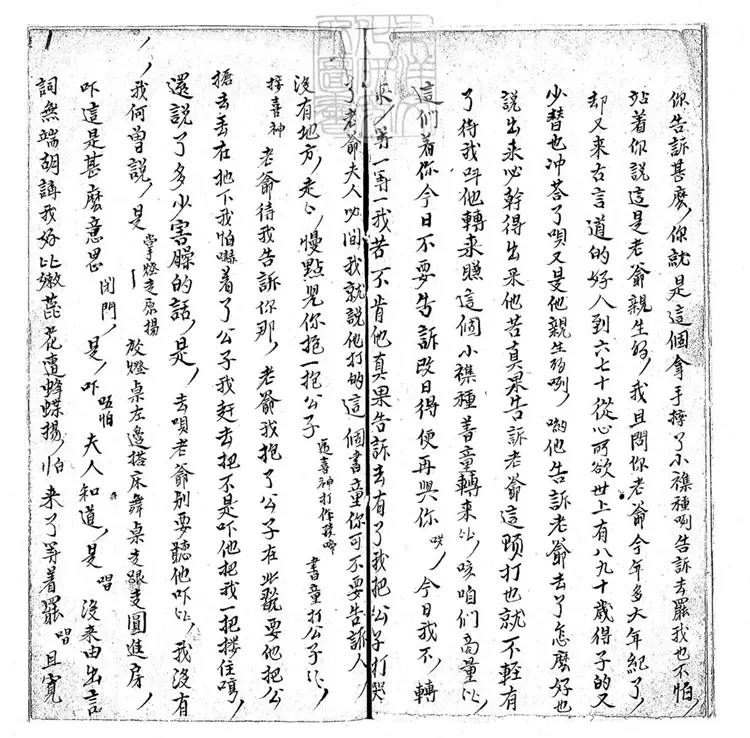 你告訴甚麽你就是這個拿手摔了小襍種咧告訴去罷我也不怕
站着你說這是老爺親生的我且問你老爺今年多大年紀了
却又來古言道的好人到六七十從心所欲世上有八九十歲得子的又
少替也冲答了唄又是他親生的咧 喲他告訴老爺去了怎麽好也
說出來必幹得出來他若真果告訴老爺這頓打也就不輕有
了待我呌他轉來賺這個小襍種書童轉來咳咱們商量
這們着你今日不要告訴改日得便再與你哭今日我不轉
來等一等一我若不肯他真果告訴去有了我把公子打哭
了老爺夫人必問我就說他打的這個書童你可不要告訴人
沒有地方走慢點兒你抱一抱公子 書童打公子
摔喜神 老爺待我告訴你那老爺我抱了公子在此翫耍他把公
搶去丟在地下我怕嚇着了公子我赶去把不是吓他把我一把摟住嗬
還說了多少害臊的話是去唄老爺別要聽他吓我沒有
我何曾說是掌燈走原塲 放燈桌左邊搭床舞桌走跟隻圓進房
吓這是甚麽意思 閉門是吓唔怕夫人知道是唱沒来由出言
詞無端胡講我好比嫩蕊花遭蜂蝶揚怕来了等着罷唱且寬